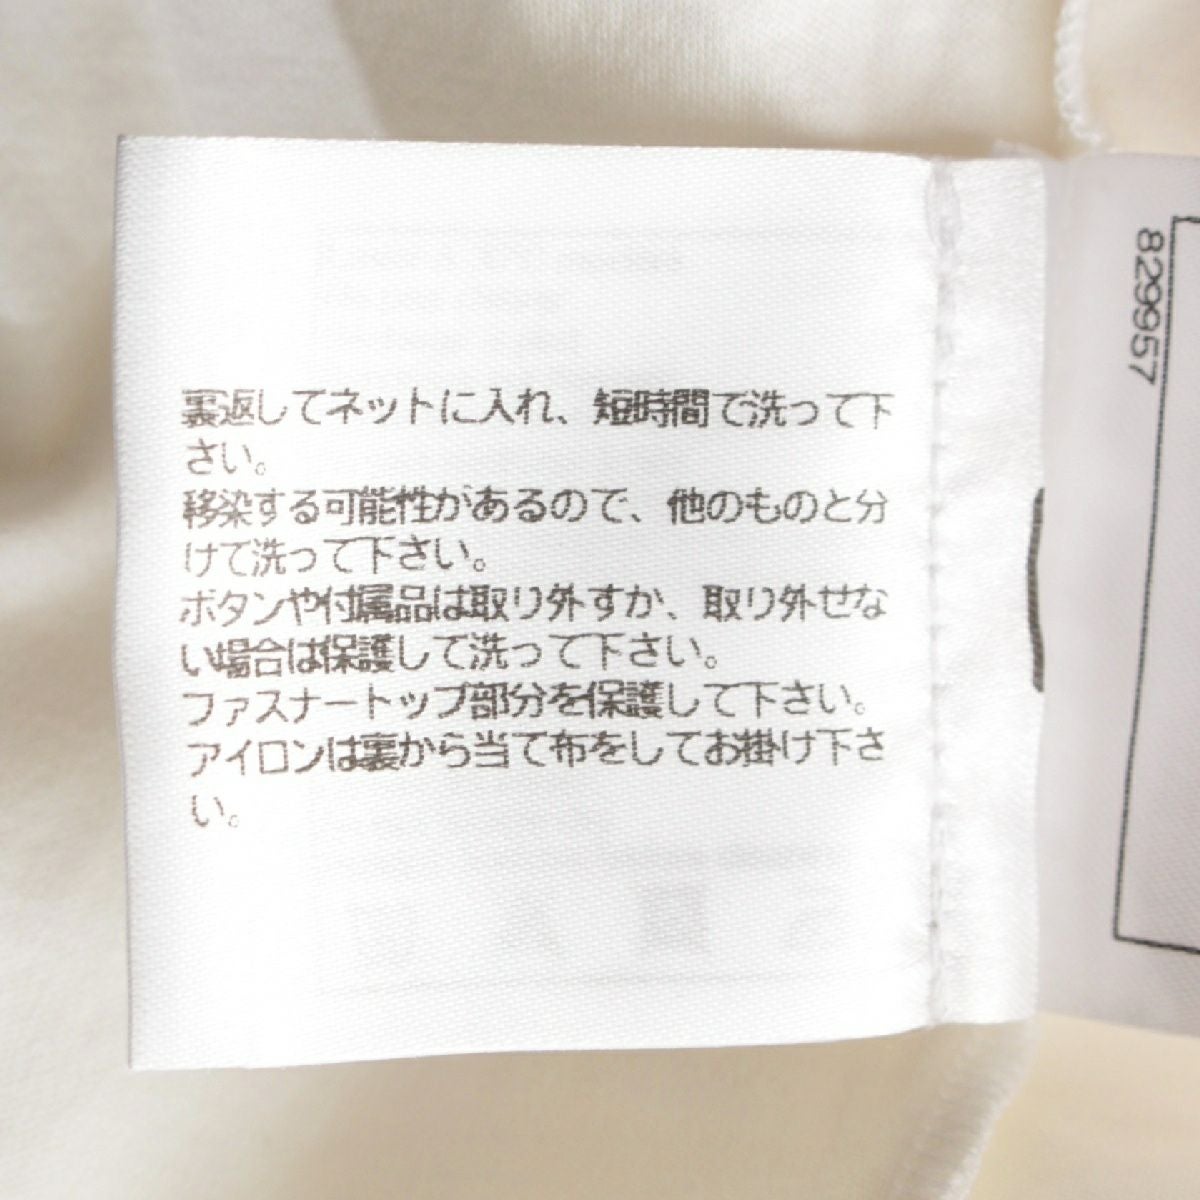 裏返してネットに入れ、短時間で洗って下
さい。
移染する可能性があるので、他のものと分
けて洗って下さい。
ボタンや付属品は取り外すか、取り外せな
い場合は保護して洗って下さい。
ファスナートップ部分を保護して下さい。
アイロンは裏から当て布をしてお掛け下さ
い。
829957